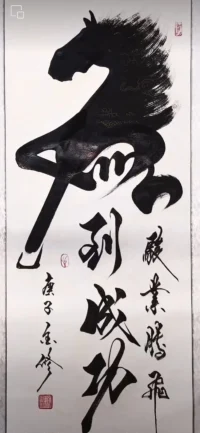 駿業騰飛
馬到成功
庚子